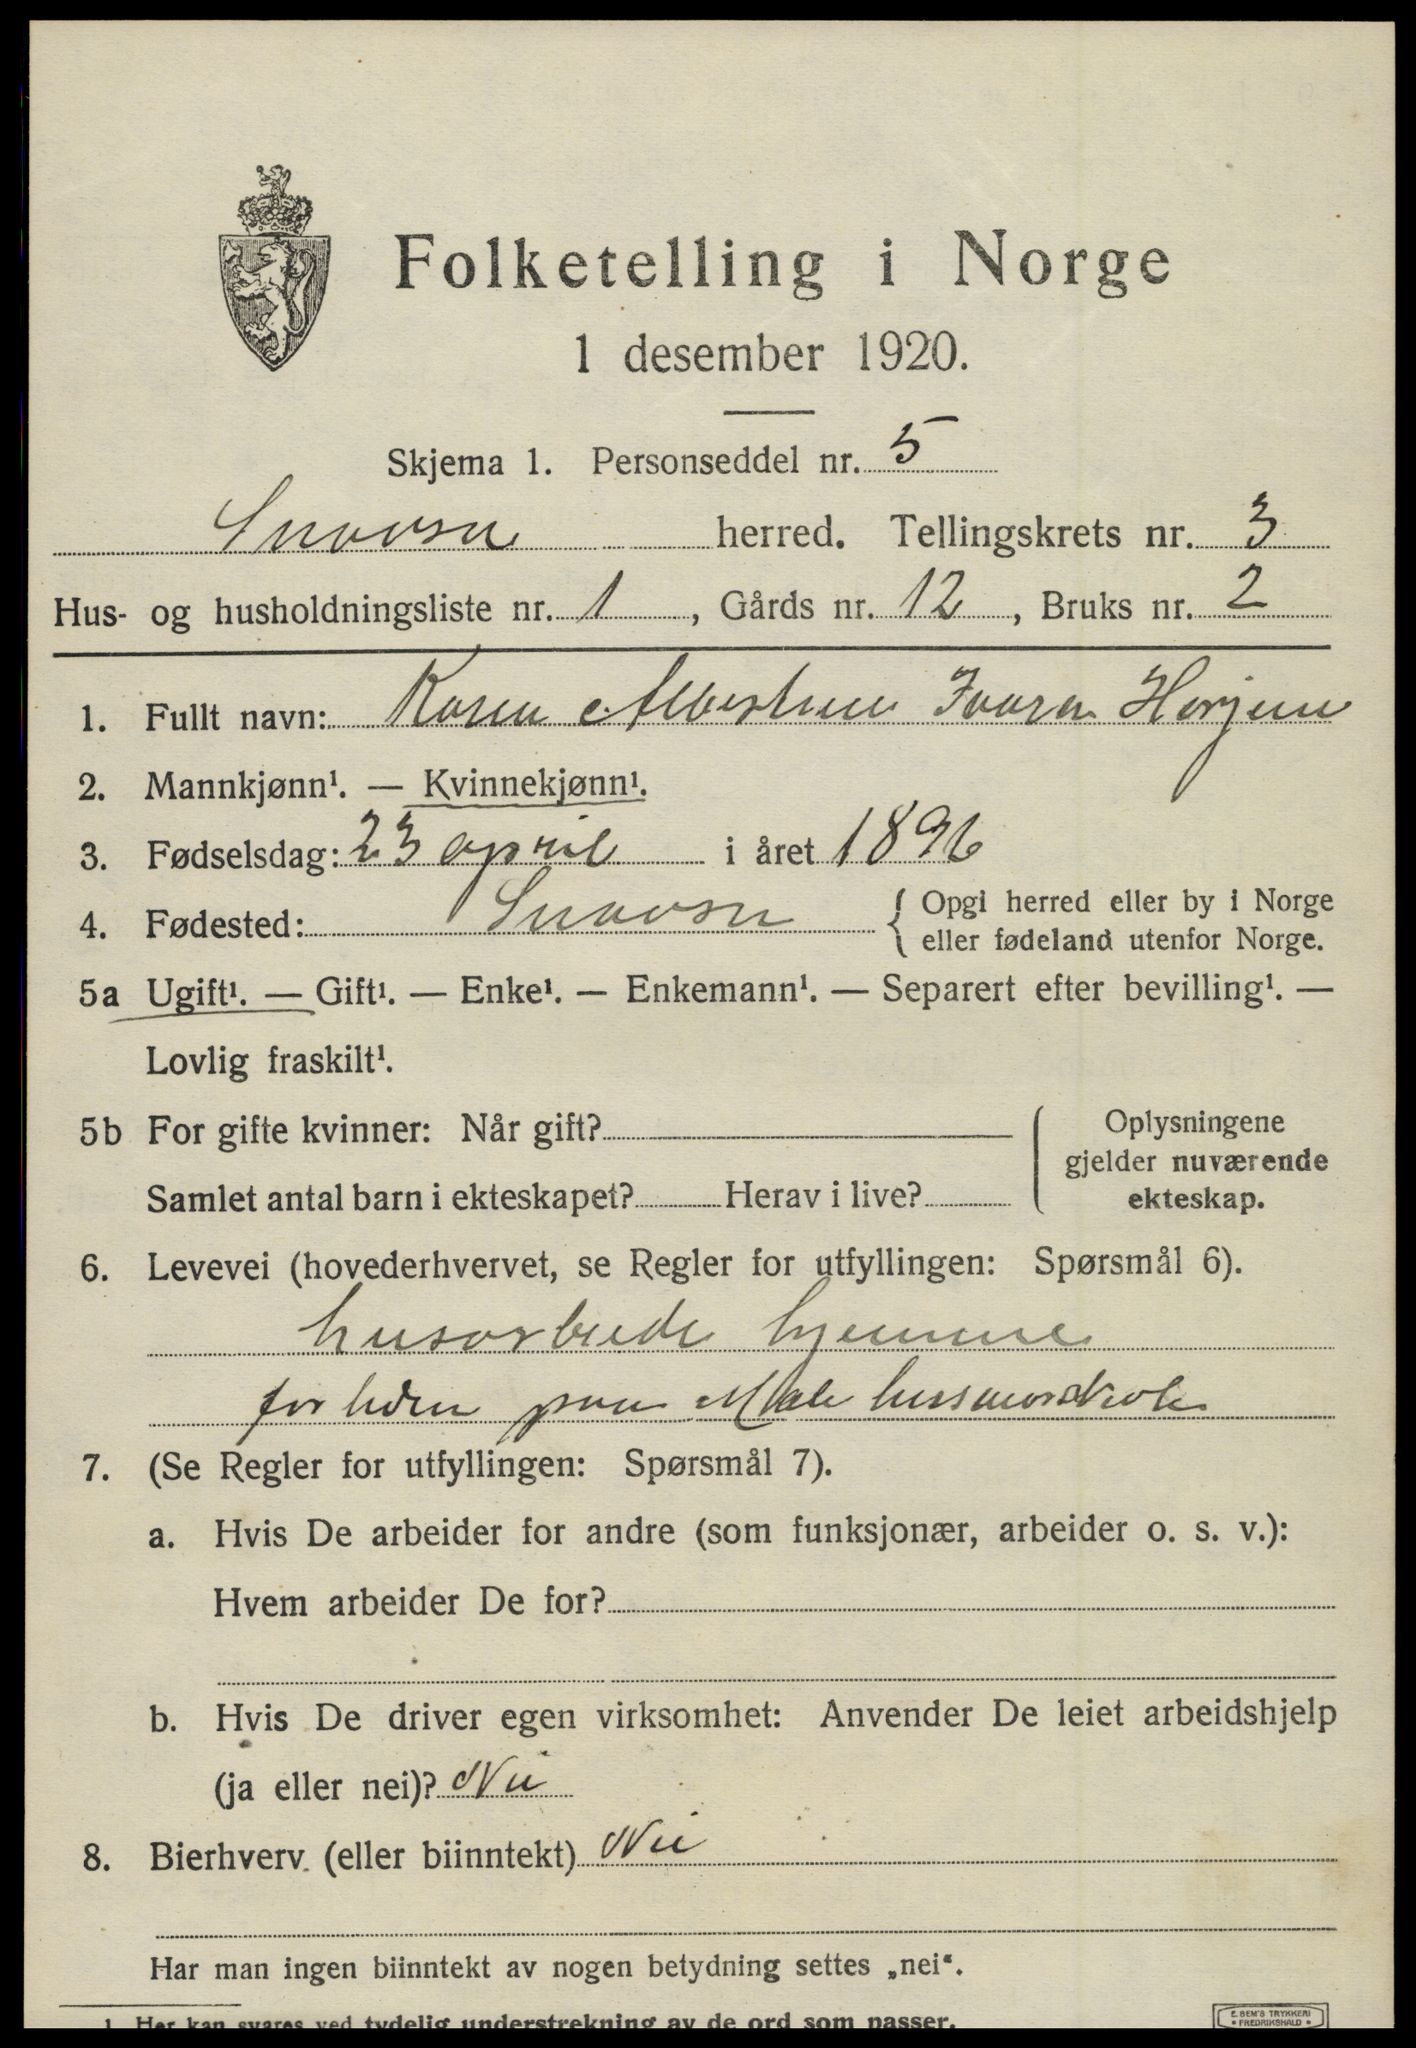 Folketelling i Norge
1 desember 1920.
Skjema 1. Personseddel nr. 5
Snaasa herred. Tellingskrets nr. 3
Hus- og husholdningsliste nr. 1, Gårds nr. 12, Bruks nr. 2
1. Fullt navn: Karen Albertine Horjem
2. Mannkjønn¹. — Kvinnekjønn¹.
3. Fødselsdag: 23 april i året 1896
4. Fødested: Snaasa { Opgi herred eller by i Norge
eller fødeland utenfor Norge.
5a Ugift¹. — Gift¹. — Enke¹. — Enkemann¹. — Separert efter bevilling¹. —
Lovlig fraskilt¹.
5b For gifte kvinner: Når gift?
Samlet antal barn i ekteskapet? Herav i live?
Oplysningene
gjelder nuværende
ekteskap.
6. Levevei (hovederhvervet, se Regler for utfyllingen: Spørsmål 6).
husarbeide hjemme
for tiden paa husmorskole
7. (Se Regler for utfyllingen: Spørsmål 7).
a. Hvis De arbeider for andre (som funksjonær, arbeider o. s. v.):
Hvem arbeider De for?
b. Hvis De driver egen virksomhet: Anvender De leiet arbeidshjelp
(ja eller nei)? Nei
8. Bierhverv (eller biinntekt) Nei
Har man ingen biinntekt av nogen betydning settes „nei“.
1 Her kan svares ved tydelig understrekning av de ord som passer.
E. SEM'S TRYKKERI
• FREDRIKSHALD •